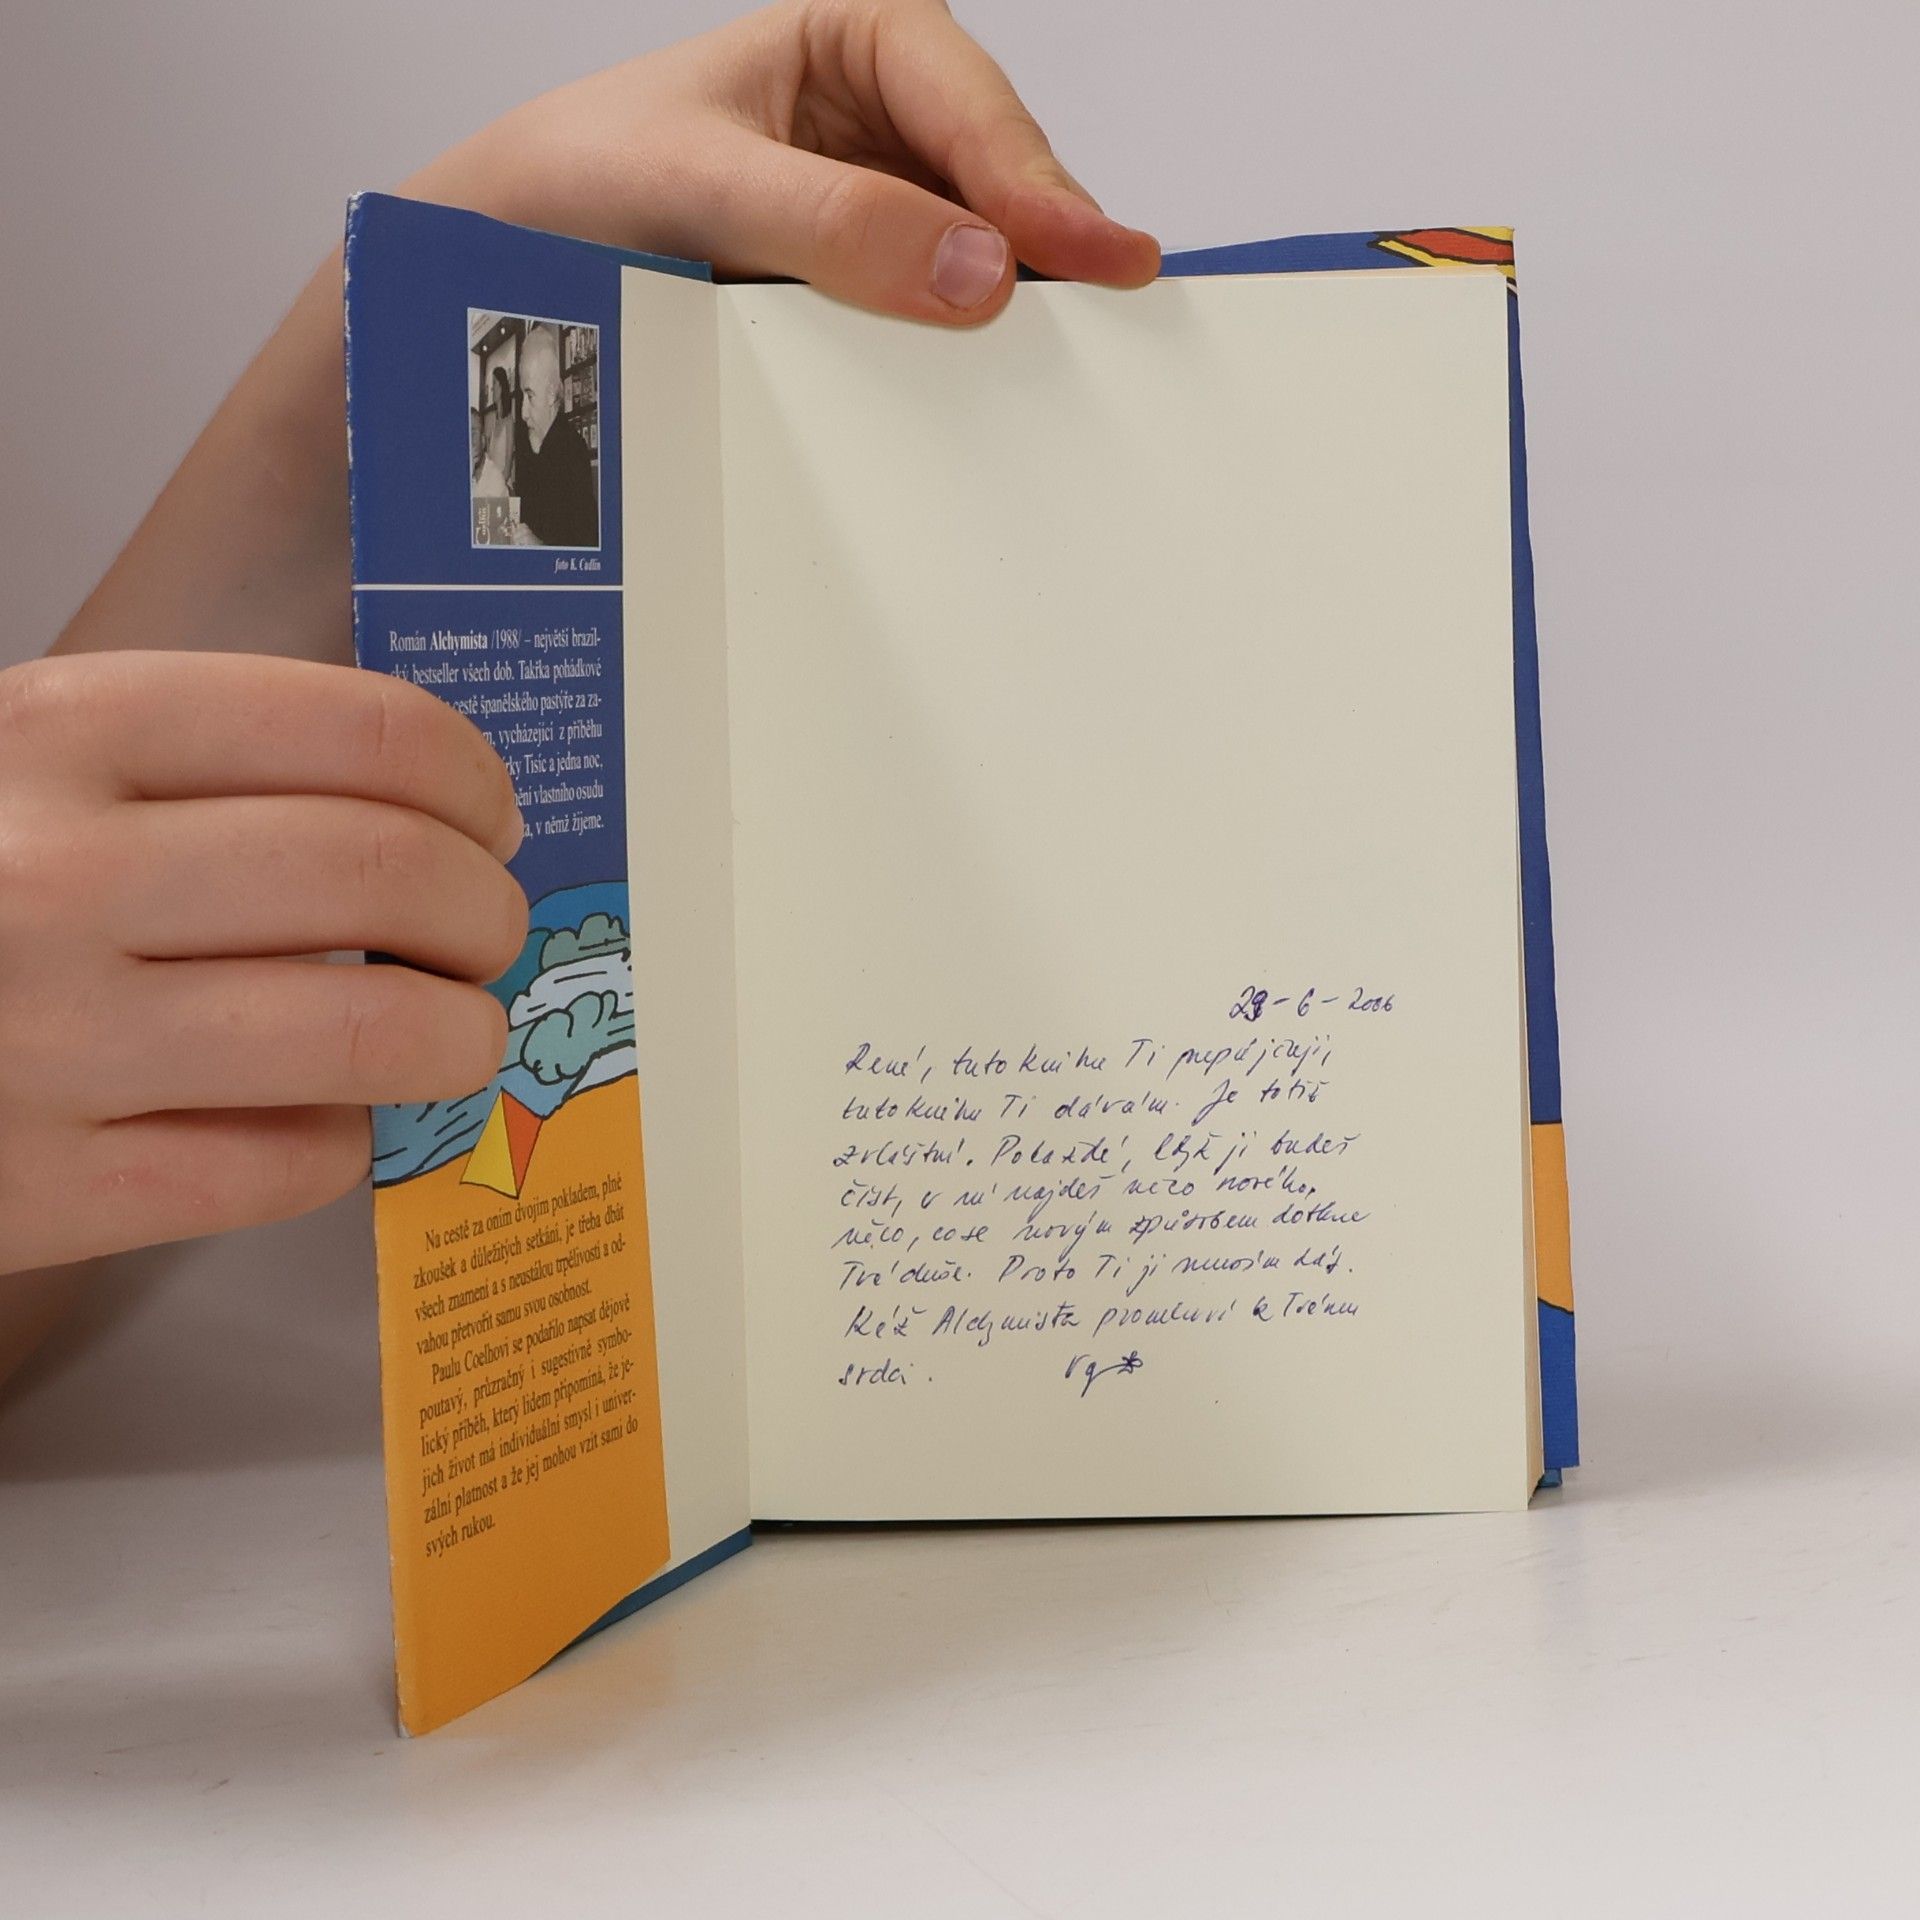 foto K. Cudlín
Román Alchymista /1988/ – největší brazil-
ský bestseller všech dob. Takřka pohádkové
cestě španělského pastýře za za-
vycházející z příběhu
Tisíc a jedna noc,
vlastního osudu
v němž žijeme.
Na cestě za oním dvojím pokladem, plné
zkoušek a důležitých setkání, je třeba dbát
všech znamení a s neustálou trpělivostí a od-
vahou přetvořit samu svou osobnost.
Paulu Coelhovi se podařilo napsat dějově
poutavý, průzračný i sugestivně symbo-
lický příběh, který lidem připomíná, že je-
jich život má individuální smysl i univer-
zální platnost a že jej mohou vzít sami do
svých rukou.
6 - 2006
René, tuto knihu Ti nepůjčuji,
tuto knihu Ti dávám. Je totiž
zvláštní. Pokaždé, když ji budeš
číst, v ní najdeš něco nového,
něco, co se novým způsobem dotkne
Tvé duše. Proto Ti ji musím dát.
Kéž Alchymista promluví k Tvému
srdci.